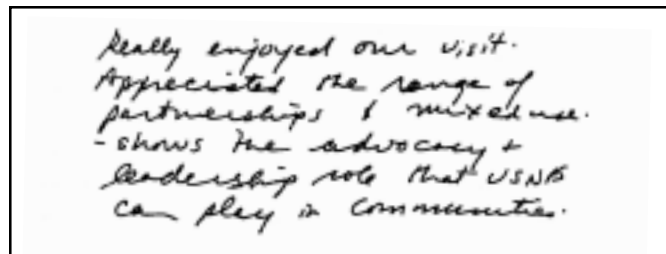 Really enjoyed our visit.
Appreciated the range of
partnerships & mixed use.
- shows the advocacy +
leadership role that USNB
can play in communities.